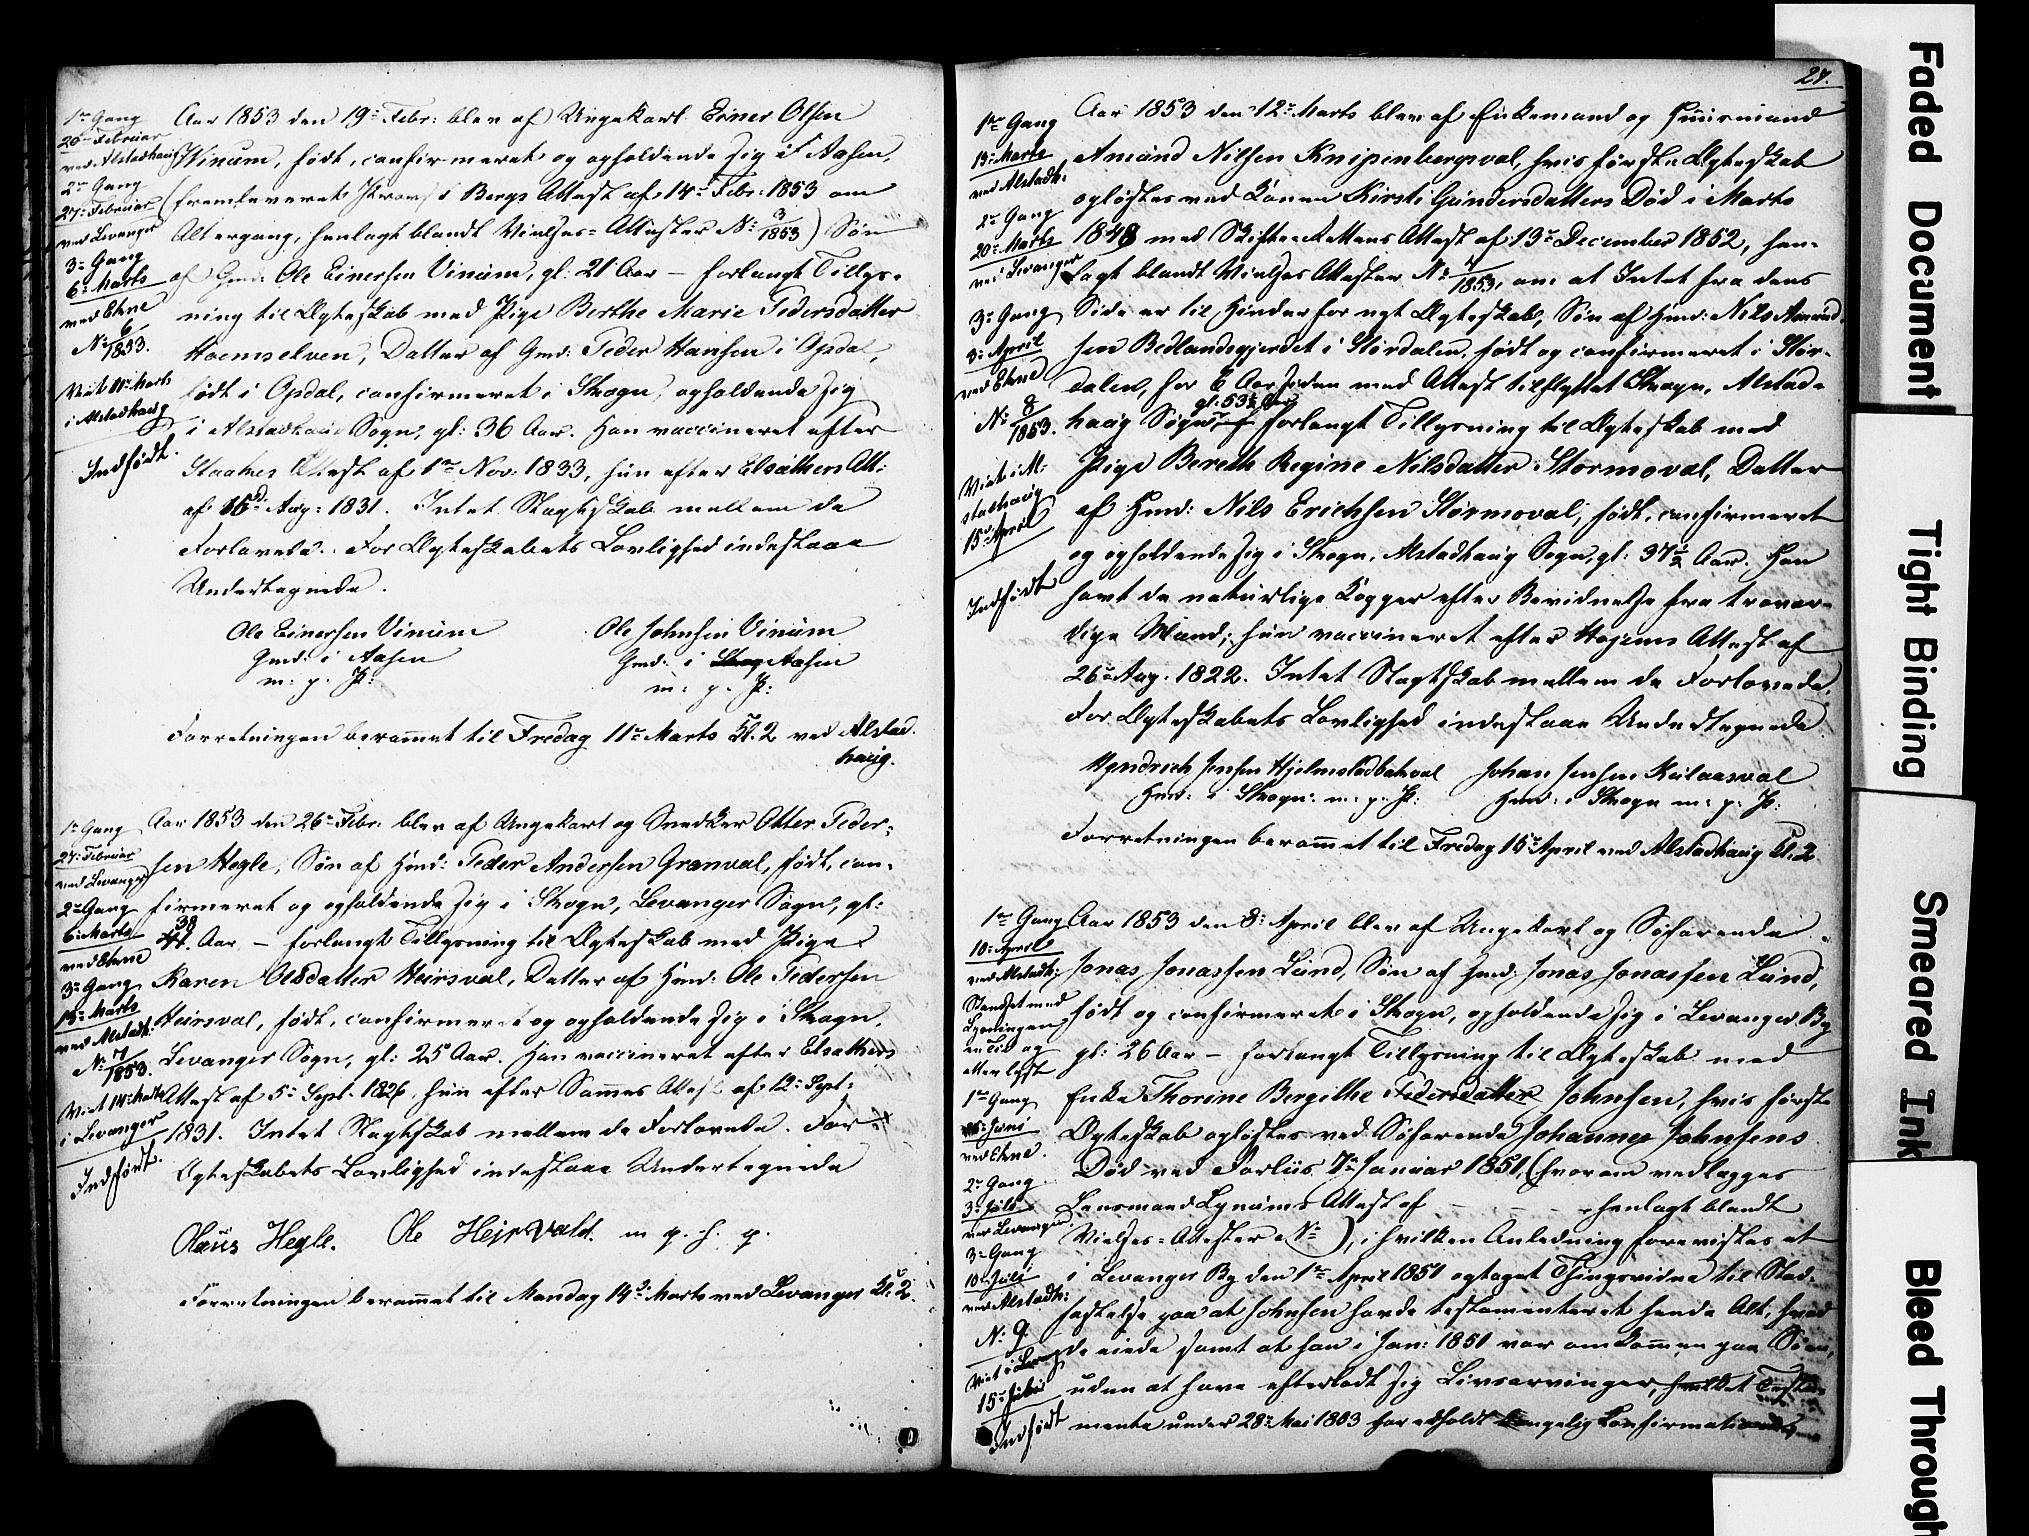 1ste Gang
20de Februar
ved Alstadhaug
2den Gang
27de Februar
ved Levanger
3die Gang
6te Marts
ved Ekne
No 6/1853.
Viet 11te Marts
i Alstadhaug
Indført.
Aar 1853 den 19de Febr: blev af Ungekarl Einer Olsen
Vinum, født, confirmeret og opholdende sig i Aasen,
(fremleveret Berg's Attest af 14de Febr: 1853 om
Altergang, henlagt blandt Vielses-Attester No 3/1853) Søn
af Gmd: Ole Einersen Vinum, gl: 21 Aar – forlangt Tillys-
ning til Ægteskab med Pige Berthe Marie Pedersdatter
Hoemselven, Datter af Gmd: Peder Hansen i Opdal,
født i Opdal, confirmeret i Skogn, opholdende sig
i Alstadhaug Sogn, gl: 36 Aar. Han vaccineret efter
Attest af 1ste Nov: 1833, hun efter Elsæthers Att:
af 15de Aug: 1831. Intet Slægtskab mellem de
Forlovede. For Ægteskabets Lovlighed indestaae
Undertegnede.
Ole Einersen Vinum Ole Johnsen Vinum
Gmd: i Aasen Gmd: i Aasen
m: p: P: m: p. P:
Forretningen berammet til Fredag 11te Marts Kl. 2 ved Alstad-
haug.
1ste Gang
27de Februar
ved Levanger
2den Gang
6te Marts
ved Ekne
3die Gang
13de Marts
ved Alstadh:
No 7/1853.
Viet 14de Marts
i Levanger
Indført.
Aar 1853 den 26de Febr: blev af Ungekarl og Snedker Otter Peder-
sen Hegle, Søn af Hmd: Peder Andersen Granval, født, con-
firmeret og opholdende sig i Skogn, Levanger Sogn, gl:
38 Aar – forlangt Tillysning til Ægteskab med Pige
Karen Olsdatter Heirsval, Datter af Hmd: Ole Pedersen
Heirsval, født, confirmeret og opholdende sig i Skogn,
Levanger Sogn, gl: 25 Aar. Han vaccineret efter Elsæthers
Attest af 5te Sept: 1826, hun efter Sammes Attest af 12te Sept:
1831. Intet Slægtskab mellem de Forlovede. For
Ægteskabets Lovlighed indestaae Undertegnede
Olaus Hegle. Ole Hejrsvald. m. p. h. p.
Forretningen berammet til Mandag 14de Marts ved Levanger Kl: 2.
27.
1ste Gang
13de Marts
ved Alstadh:
2den Gang
20de Marts
ved Levanger
3die Gang
3die April
ved Ekne
No 8/1853.
Viet i Al-
stadhaug
15de April
Indført
Aar 1853 den 12te Marts blev af Enkemand og Huusmand
Amund Nilsen Knipenbergsval, hvis første Ægteskab
opløstes ved Konen Kirsti Gundersdatters Død i Marts
1848 med Skifte-Rettens Attest af 13de December 1852, hen-
lagt blandt Vielses Attester No 4/1853, om at Intet fra dens
Side er til Hinder for nyt Ægteskab, Søn af Hmd: Nils Amund-
sen Bedlandsgjerdet i Størdalen, født og confirmeret i Stør-
dalen, for 6 Aar siden med Attest tilflyttet Skogn, Alstad-
haug Sogn, gl: 53½ Aar forlangt Tillysning til Ægteskab med
Pige Bereth Regine Nilsdatter Stormoval, Datter
af Hmd: Nils Erichsen Stormoval, født, confirmeret
og opholdende sig i Skogn, Alstadhaug Sogn, gl: 37½ Aar. Han
havt de naturlige Kopper efter Bevidnelse fra trovær-
dige Mænd; hun vaccineret efter Attest af
26de Aug. 1822. Intet Slægtskab mellem de Forlovede.
For Ægteskabets Lovlighed indestaae Undertegnede
Hendrich Jensen Hjelmstadbakval Johan Jensen Rulaasval
Hmd: i Skogn: m: p: P: Hmd: i Skogn m: p: P:
Forretningen berammet til Fredag 15de April ved Alstadhaug Kl: 2
1ste Gang
10de April
ved Alstadh:
Standset med
Lysningen
en Tid og
atter lyst
1ste Gang
26de Juni
ved Ekne.
2den Gang
3die Juli
ved Levanger
3die Gang
10de Juli
ved Alstadh:
No 9
Viet i Levanger
15de Juli
Indført
Aar 1853 den 8de April blev af Ungekarl og Søfarende
Jonas Jonassen Lund, Søn af Gmd: Jonas Jonassen Lund,
født og confirmeret i Skogn, opholdende sig i Levanger By
gl: 26 Aar – forlangt Tillysning til Ægteskab med
Enke Thorine Bergithe Pedersdatter Johnsen, hvis første
Ægteskab opløstes ved Søfarende Johannes Johnsens
Død ved Forliis 7de Januar 1851, (hvorom vedlægges
Lensmand Lynums Attest af – – – henlagt blandt
Vielses-Attester No ), i hvilken Anledning forevistes et
i Levanger By den 1ste April 1851 optaget Thingsvidne til Stad-
fæstelse paa at Johnsen havde testamenteret hende Alt, hvad
de eiede samt at han i Jan: 1851 var omkommen paa Søen,
uden at have efterladt sig Livsarvinger, hvilket Testa-
mente under 28de Mai 1853 har erholdt kongelig Confirmation
Faded Document
Tight Binding
Smeared Ink
Bleed Through